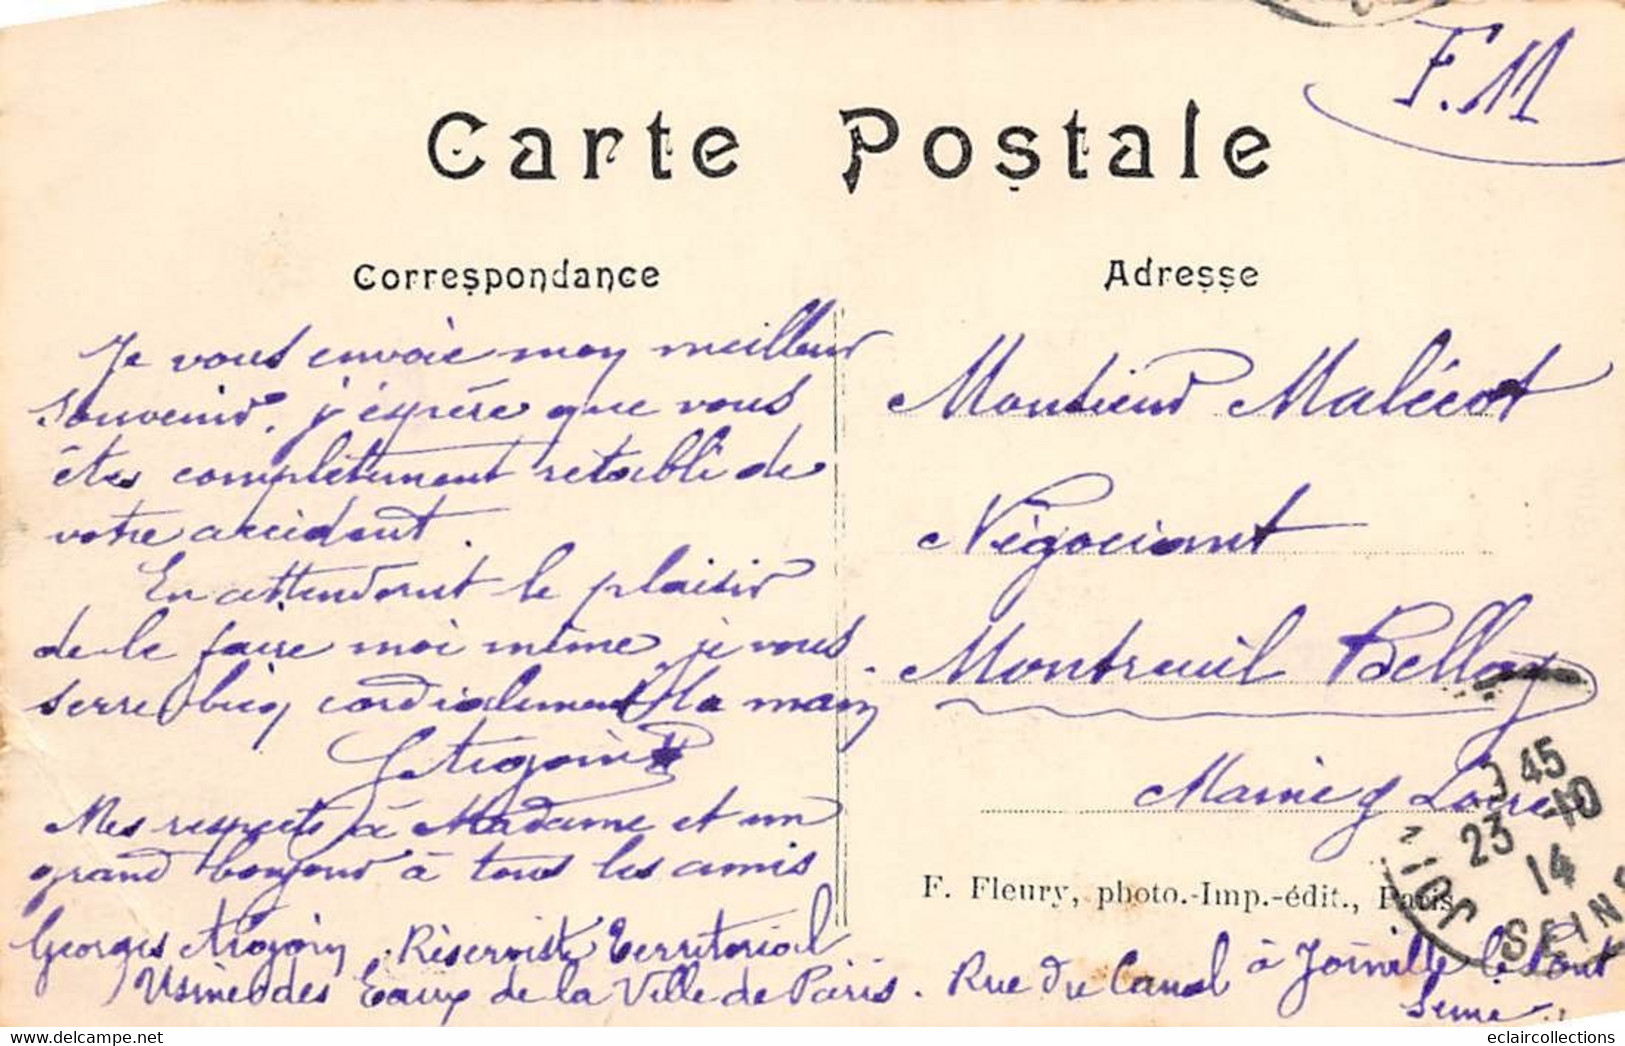 F.M
Carte Postale
Correspondance
Je vous envoie mon meilleur
souvenir. j'éspére que vous
êtes complètement rétabli de
votre accident.
En attendant le plaisir
de le faire moi même je vous
serre bien cordialement la main
Mes respects à Madame et un
grand bonjour à tous les amis
Georges Réserviste Territorial
Usine des Eaux de la Ville de Paris. Rue du Canal à Joinville le Pont
Seine.
Adresse
Monsieur Malécot
Négociant
Montreuil Bellay
Maine & Loire
F. Fleury, photo.-Imp.-édit., Paris
45
23 -10
14
JOIN
SEINE
eclaircollections